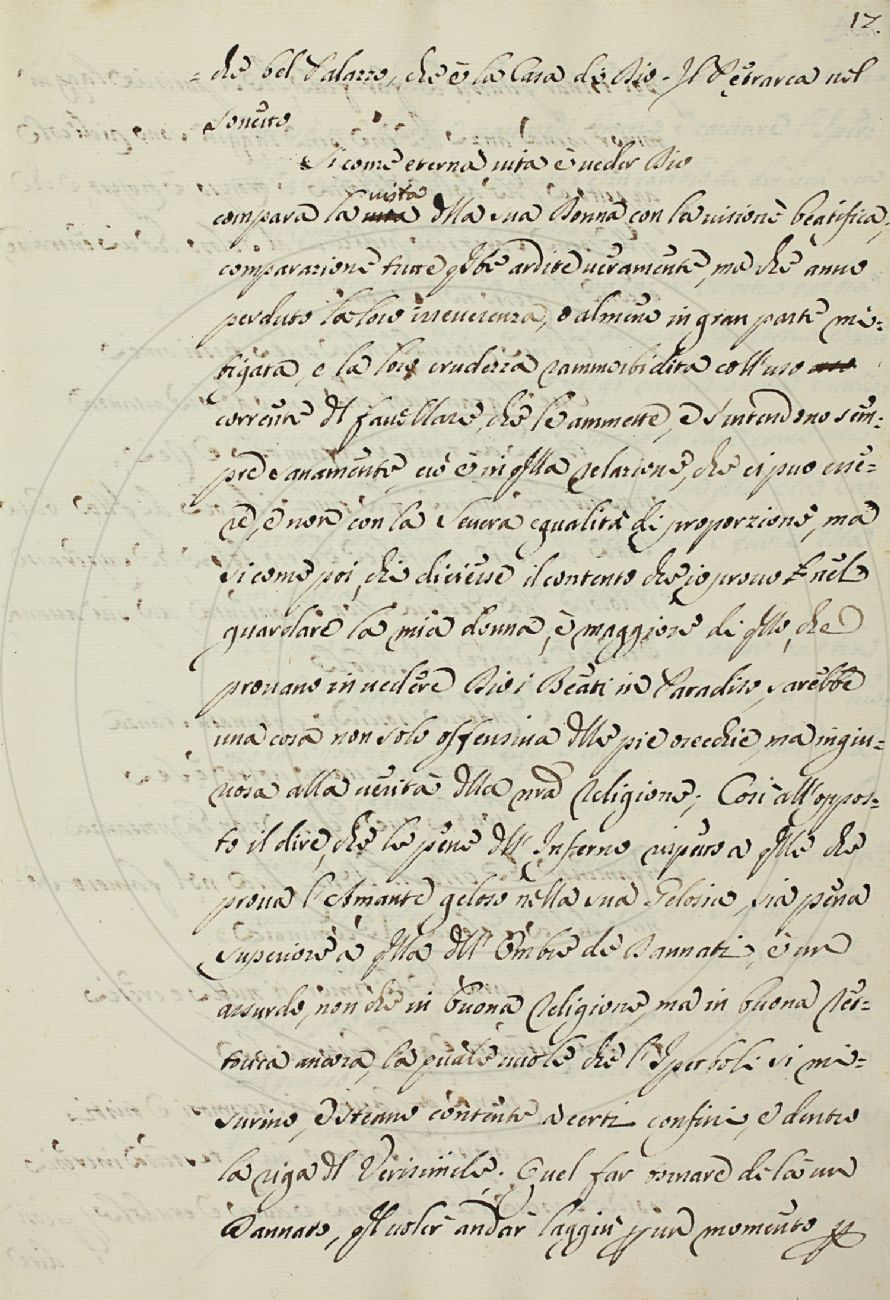 17.
= che bel Palazzo, che è la Casa di Dio. Il Petrarca nel
Sonetto
Si come eterna vita è veder Dio
compara la vista dlla sua Donna con la visione beatifica,
comparazione tutte qste ardite veramente, ma che anno
perduto la loro irreverenza, o almeno in gran parte mi=
tigata, e la loro crudezza rammorbidita coll'uso
corrente dl favellare, che le ammette, e s'intendono sem=
pre sanamente, ciò è in qlla relazione, che ci può esse=
re, e non con la severa egualità di proporzione, ma
si come poi, chi dicesse il contento che io provo nel
guardare la mia donna, è maggiore di qllo, che
provano in vedere Dio i Beati in Paradiso, sarebbe
una cosa non solo offensiva dlle pie orecchie, ma ingiu=
riosa alla verità dlla nra Religione; Così all'oppos=
to il dire, che le pene dll'Inferno rispetto a qlle che
prova l'Amante geloso nella sua Gelosia, sia pena
superiore a qlla dll'Ombre de Dannati, è un
assurdo, non che in buona Religione, ma in buona Ret=
torica ancora, la quale vuole che l'Iperbole si mi=
surino, e stieno contente a certi confini, e dentro
la riga dl Verisimile. Quel far tornare di là un
Dannato, ql voler andar laggiù p un momento p